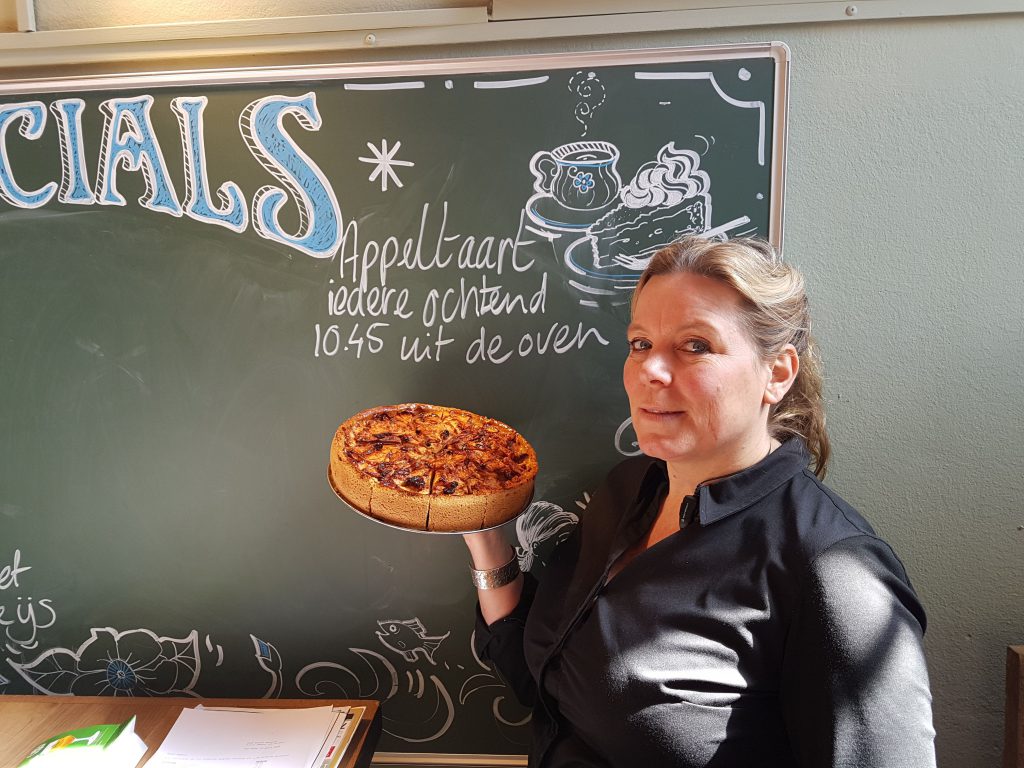 CIALS
Appeltaart
iedere ochtend
10.45 uit de oven
et
eijs